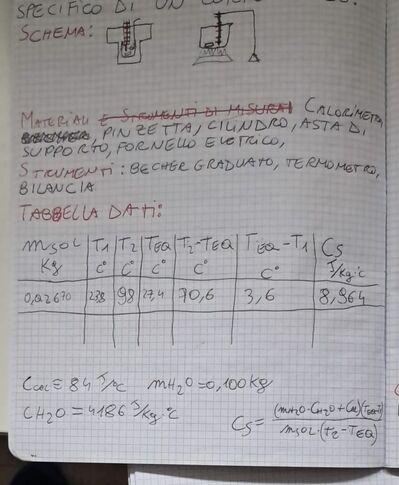 SPECIFICO DI UN
SCHEMA:
MATERIALI E STRUMENTI DI MISURA CALORIMETRO,
PINZETTA, CILINDRO, ASTA DI
SUPPORTO, FORNELLO ELETRICO,
STRUMENTI: BECHER GRADUATO, TERMOMETRO,
BILANCIA
TABBELLA DATI:
mSOL T1 T2 TEQ T2-TEQ TEQ-T1 CS
Kg C° C° C° C° C° J/Kg·°C
0,02670 23,8 98 27,4 70,6 3,6 8,964
Ccal = 84 J/°C mH2O = 0,100 Kg
CH2O = 4186 J/Kg·°C
CS = (mH2O·CH2O+Cal)(TEQ-T1)
mSOL·(T2-TEQ)